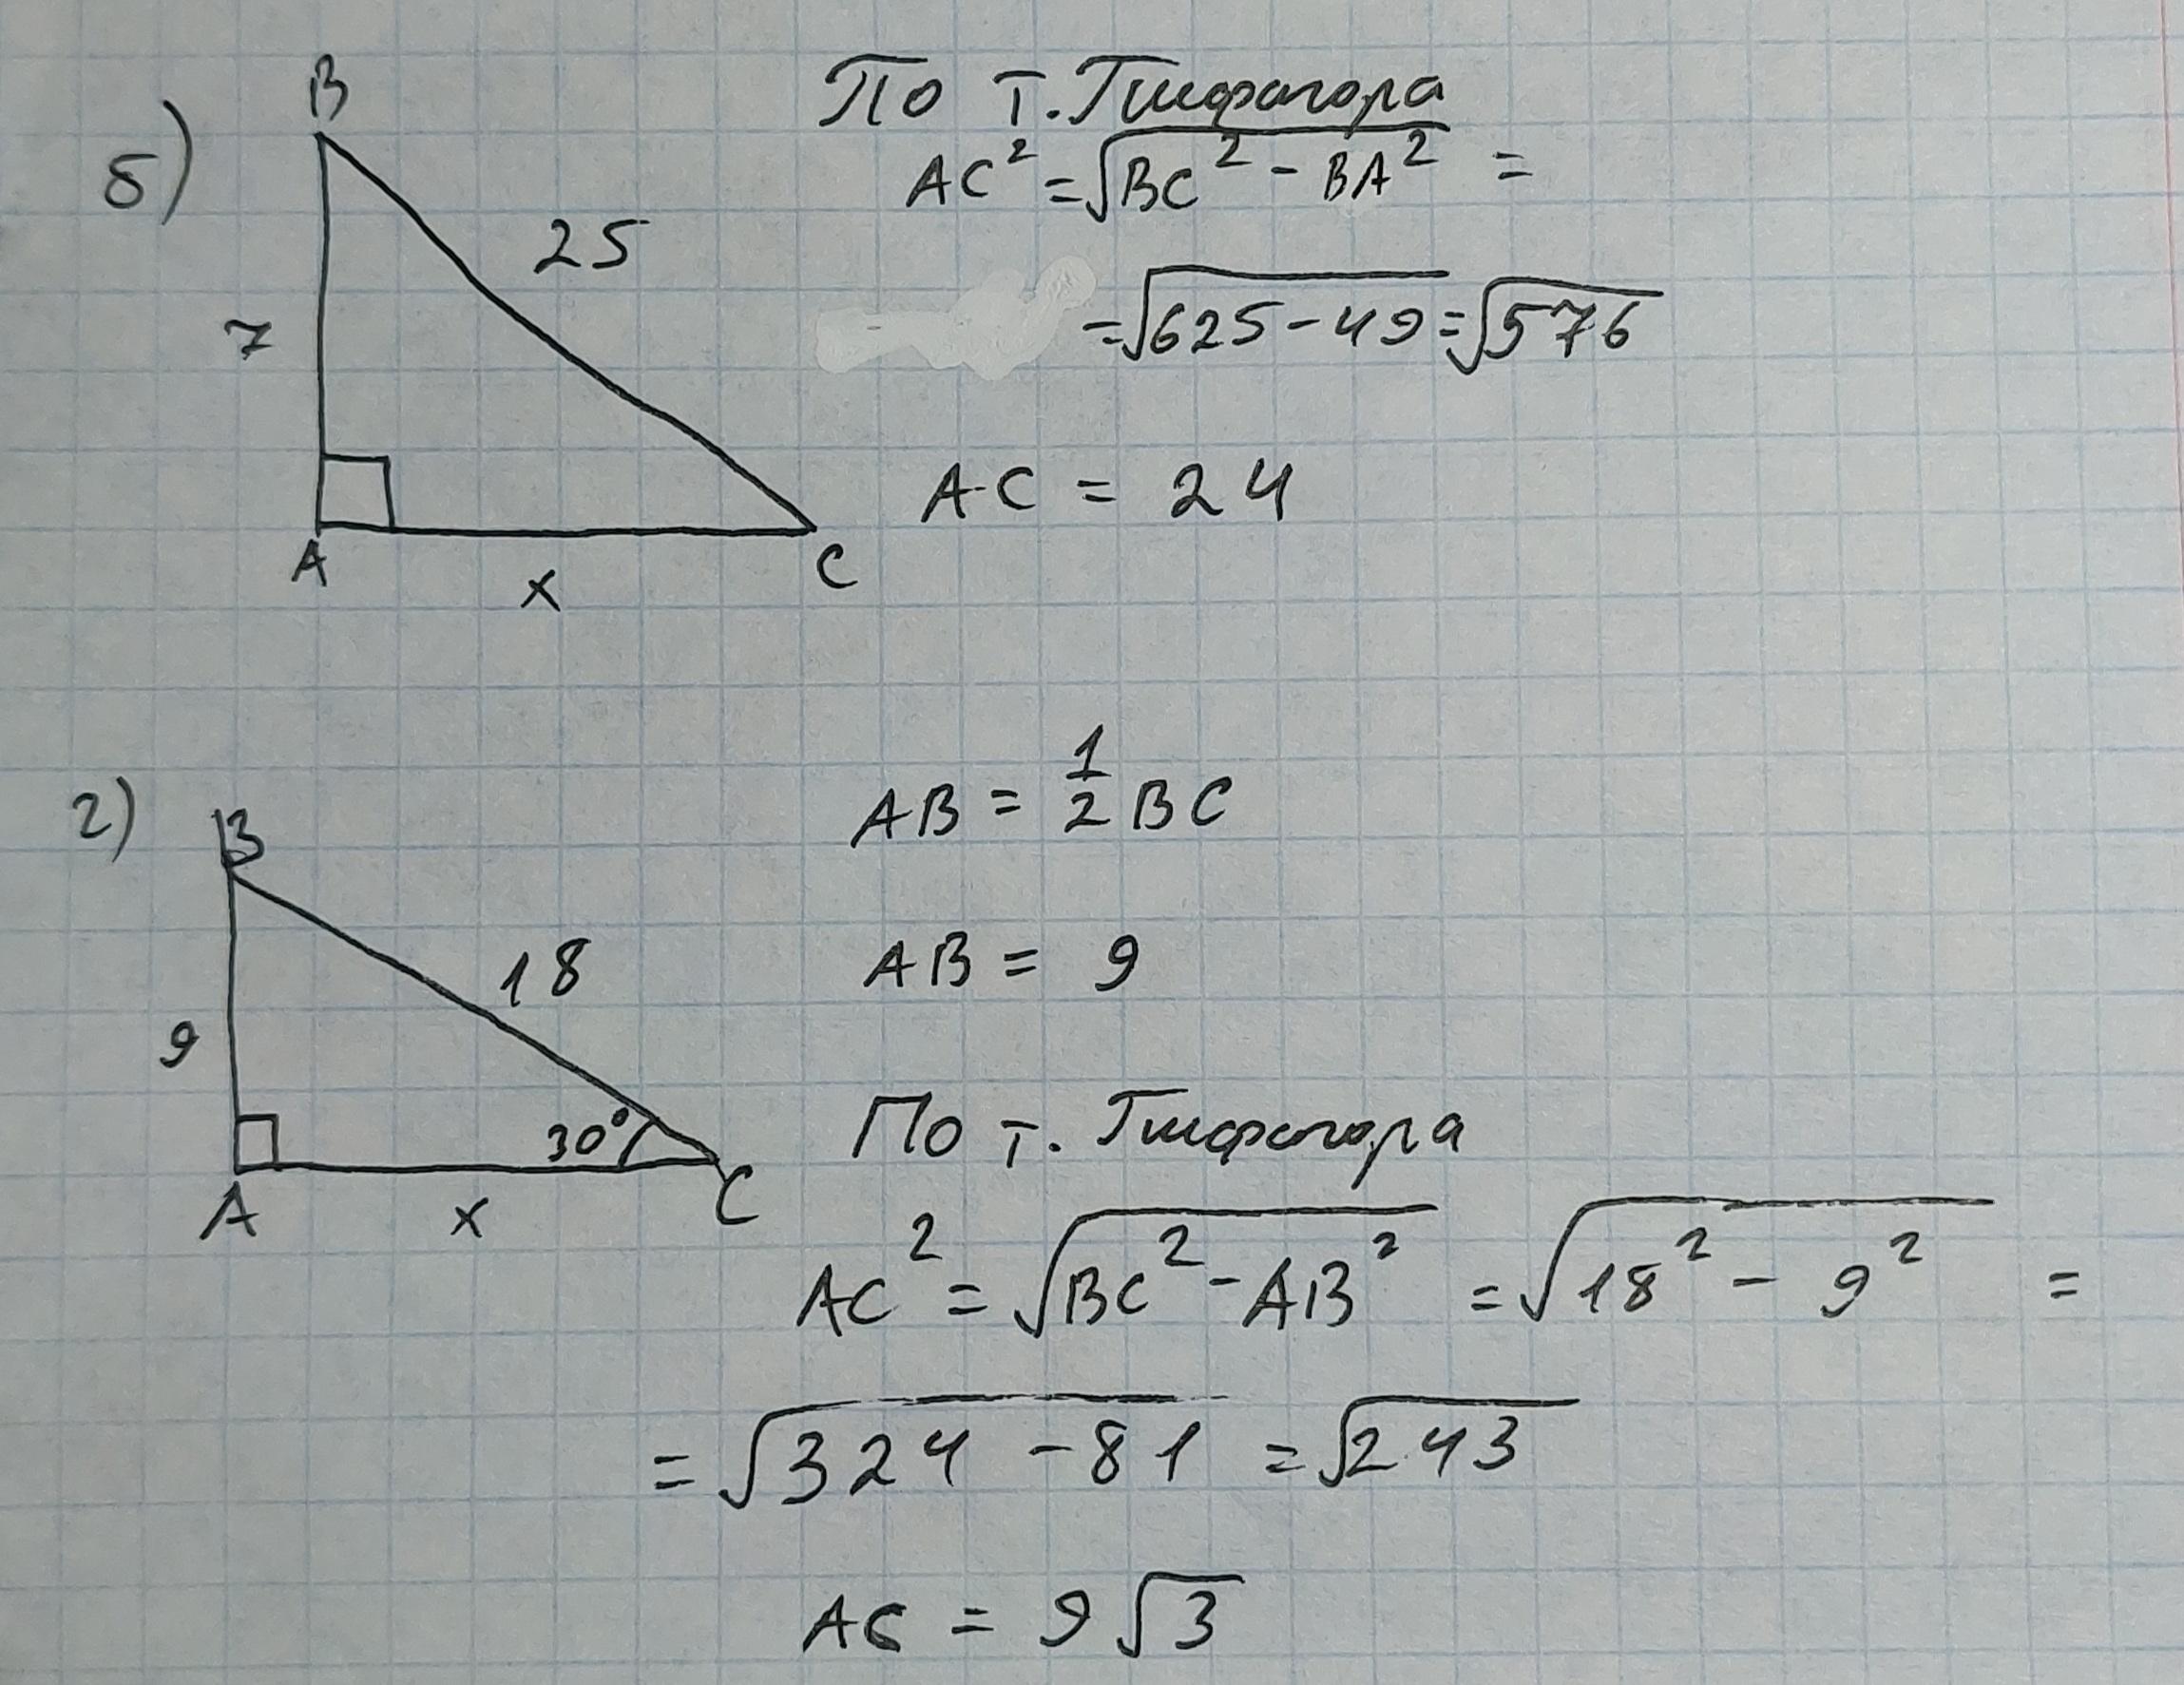 б)
B
25
7
A
x
C
По т. Пифагора
AC² = √BC² - BA² =
= √625 - 49 = √576
AC = 24
г)
B
18
9
30°
A
x
C
AB = 1/2 BC
AB = 9
По т. Пифагора
AC² = √BC² - AB² = √18² - 9² =
= √324 - 81 = √243
AC = 9√3